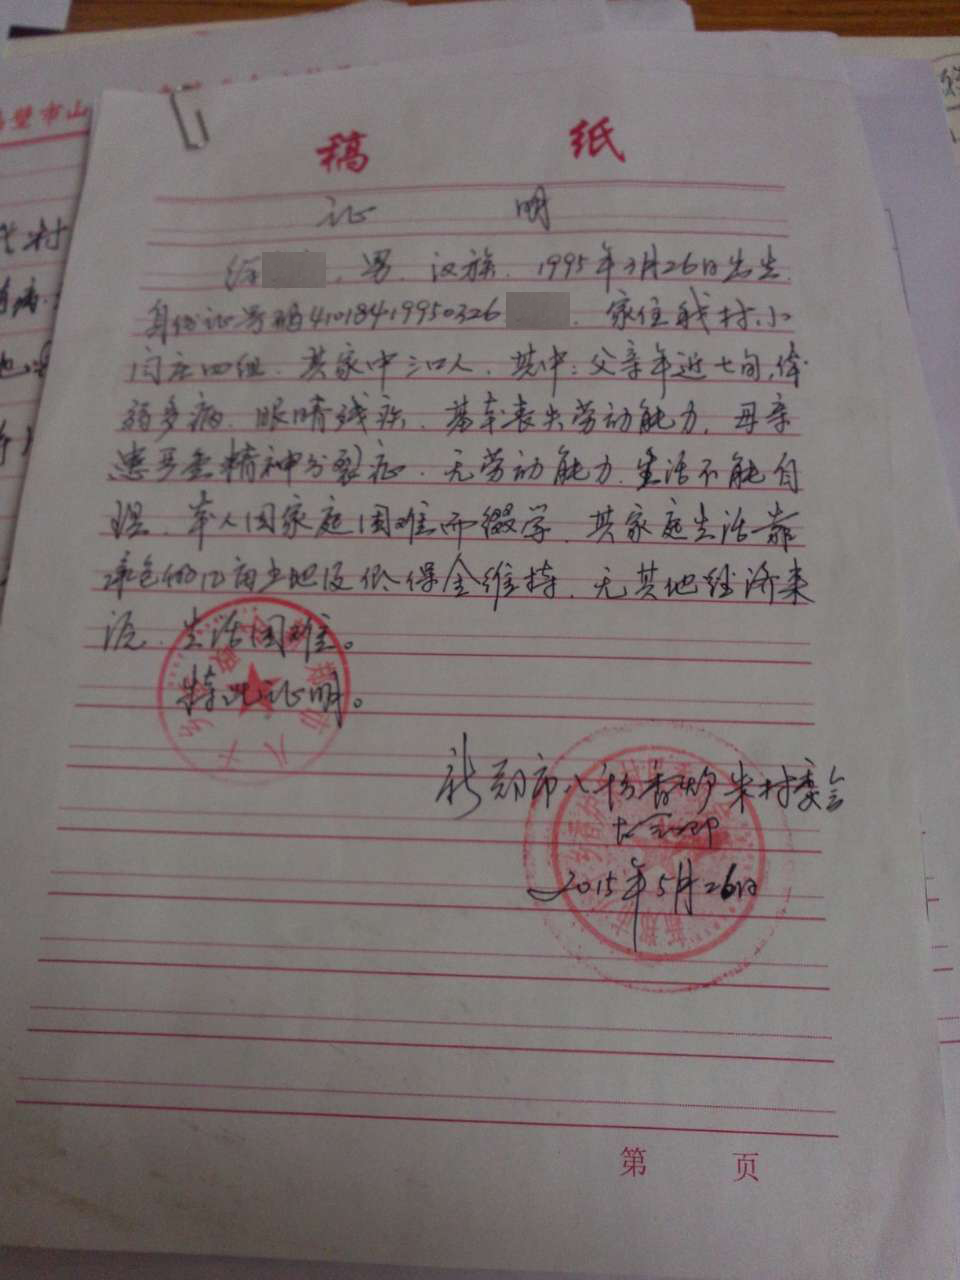 稿 纸
证 明
徐 , 男. 汉族. 1995年3月26日出生
身份证号码41018419950326 . 家住我村小
闫庄四组. 其家中三口人. 其中: 父亲年近七旬, 体
弱多病. 眼睛残疾. 基本丧失劳动能力. 母亲
患严重精神分裂症. 无劳动能力. 生活不能自
理. 本人因家庭困难而缀学. 其家庭生活靠
承包的几亩土地及低保金维持. 无其他经济来
源. 生活困难。
特此证明。
新郑市八千乡 村委会
2015年5月26日
第 页